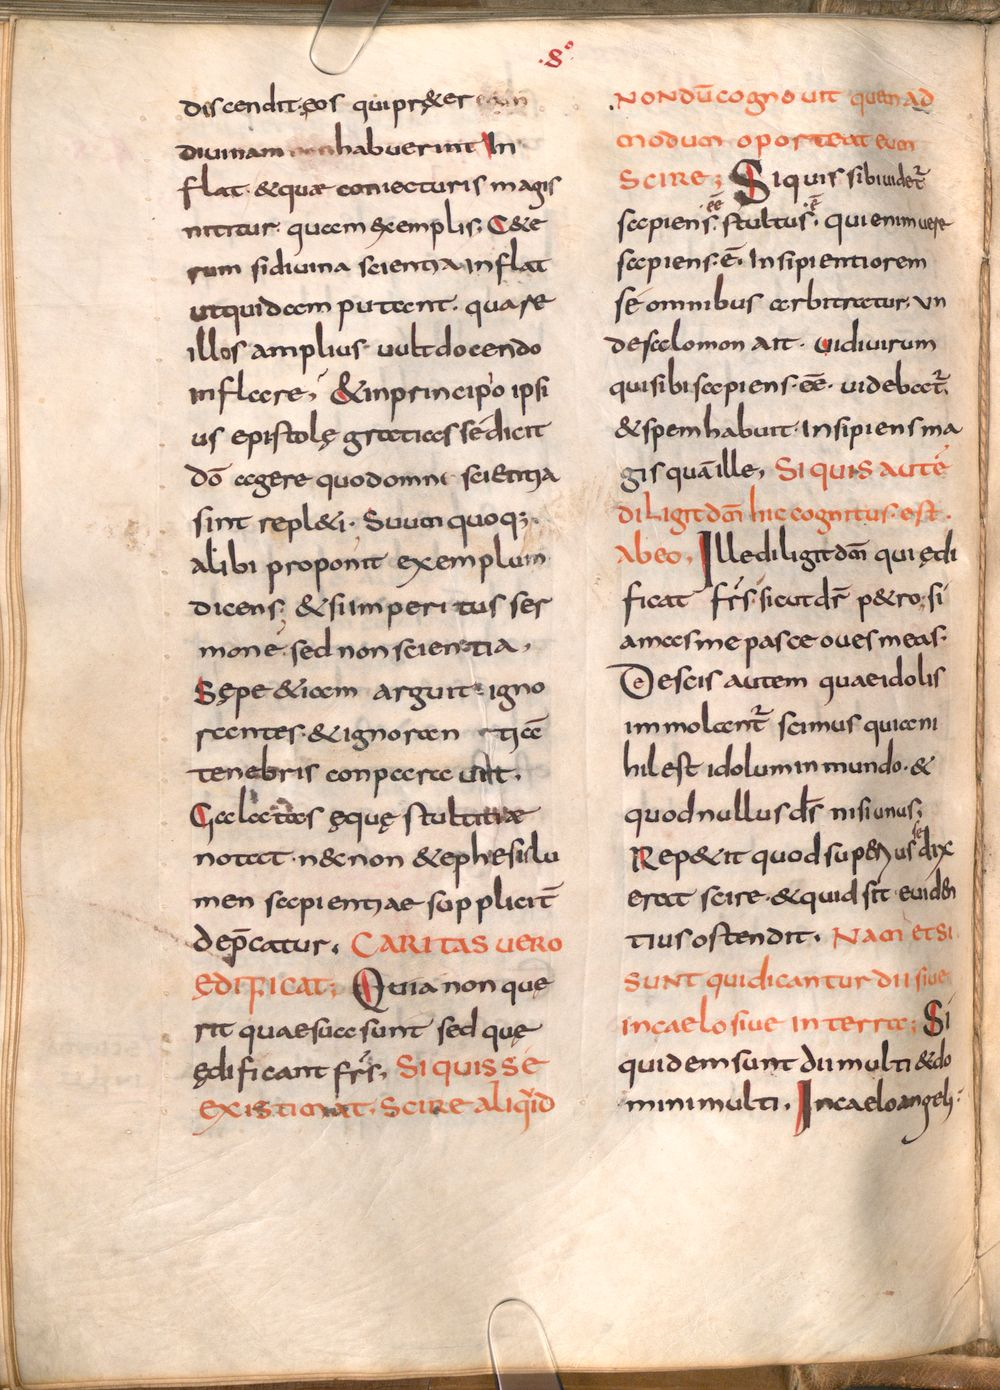 ·S·
discendit·eos qui pr&er eam
diuinam non habuerint In
flat·&quae coniecturis magis
nititur· quam exemplis; C&e
rum si diuina scientia Inflat
ut quidam putant· quare
illos amplius· uult docendo
inflare; & in principio ipsi
us epistolę gratias se dicit
dō agere quod omni scientia
sint repl&i· Suum quoq;
alibi proponit exemplum
dicens; & si imperitus ser
mone· sed non scientia,
Sępe &iam arguit· igno
rantes·& ignoran tię
tenebris conparauit.
Galatas ęquę stultitiae
notat·n&non &ephesislu
men sapientiae supplicit̄
dep̄catur. CARITAS uERO
ĘDIFICAT; Quia non quę
rit quae sua sunt sed quę
ędificant fr̄s, SI QUIS SE
EXISTIMAT· SCIRE aliqid
NONDŪ cognouit quemad
modum oportEat eum
SCIRE; Si quis sibi uidet̄
sapiens·ēē stultus·ē· qui enim uere
sapiens·ē· Insipientiorem
se omnibus arbitratur· un
de salomon ait· uidi uirum
qui sibi sapiens·ēē· uidebat̄
& spem habuit· Insipiens ma
gis quā ille, SI QUIS AUTĒ
DILIGIT dm̄ hic cognitus·est·
Ab eo, Ille diligit dm̄ qui ędi
ficat fr̄s· sicut dr̄ p&ro· si
amas me pasce oues meas·
De escis autem quae idolis
immolant̄ scimus quia ni
hil est idolum in mundo·&
quod nullus d̄s nisi unus;
Rep&it quod superius se dix
erat scire·&quid sit euiden
tius ostendit. NAM ETSI
SUNT qui dicantur dii siue
IN caelo siue IN terra; Si
quidem sunt dii multi & do
mini multi. In caelo angeli·